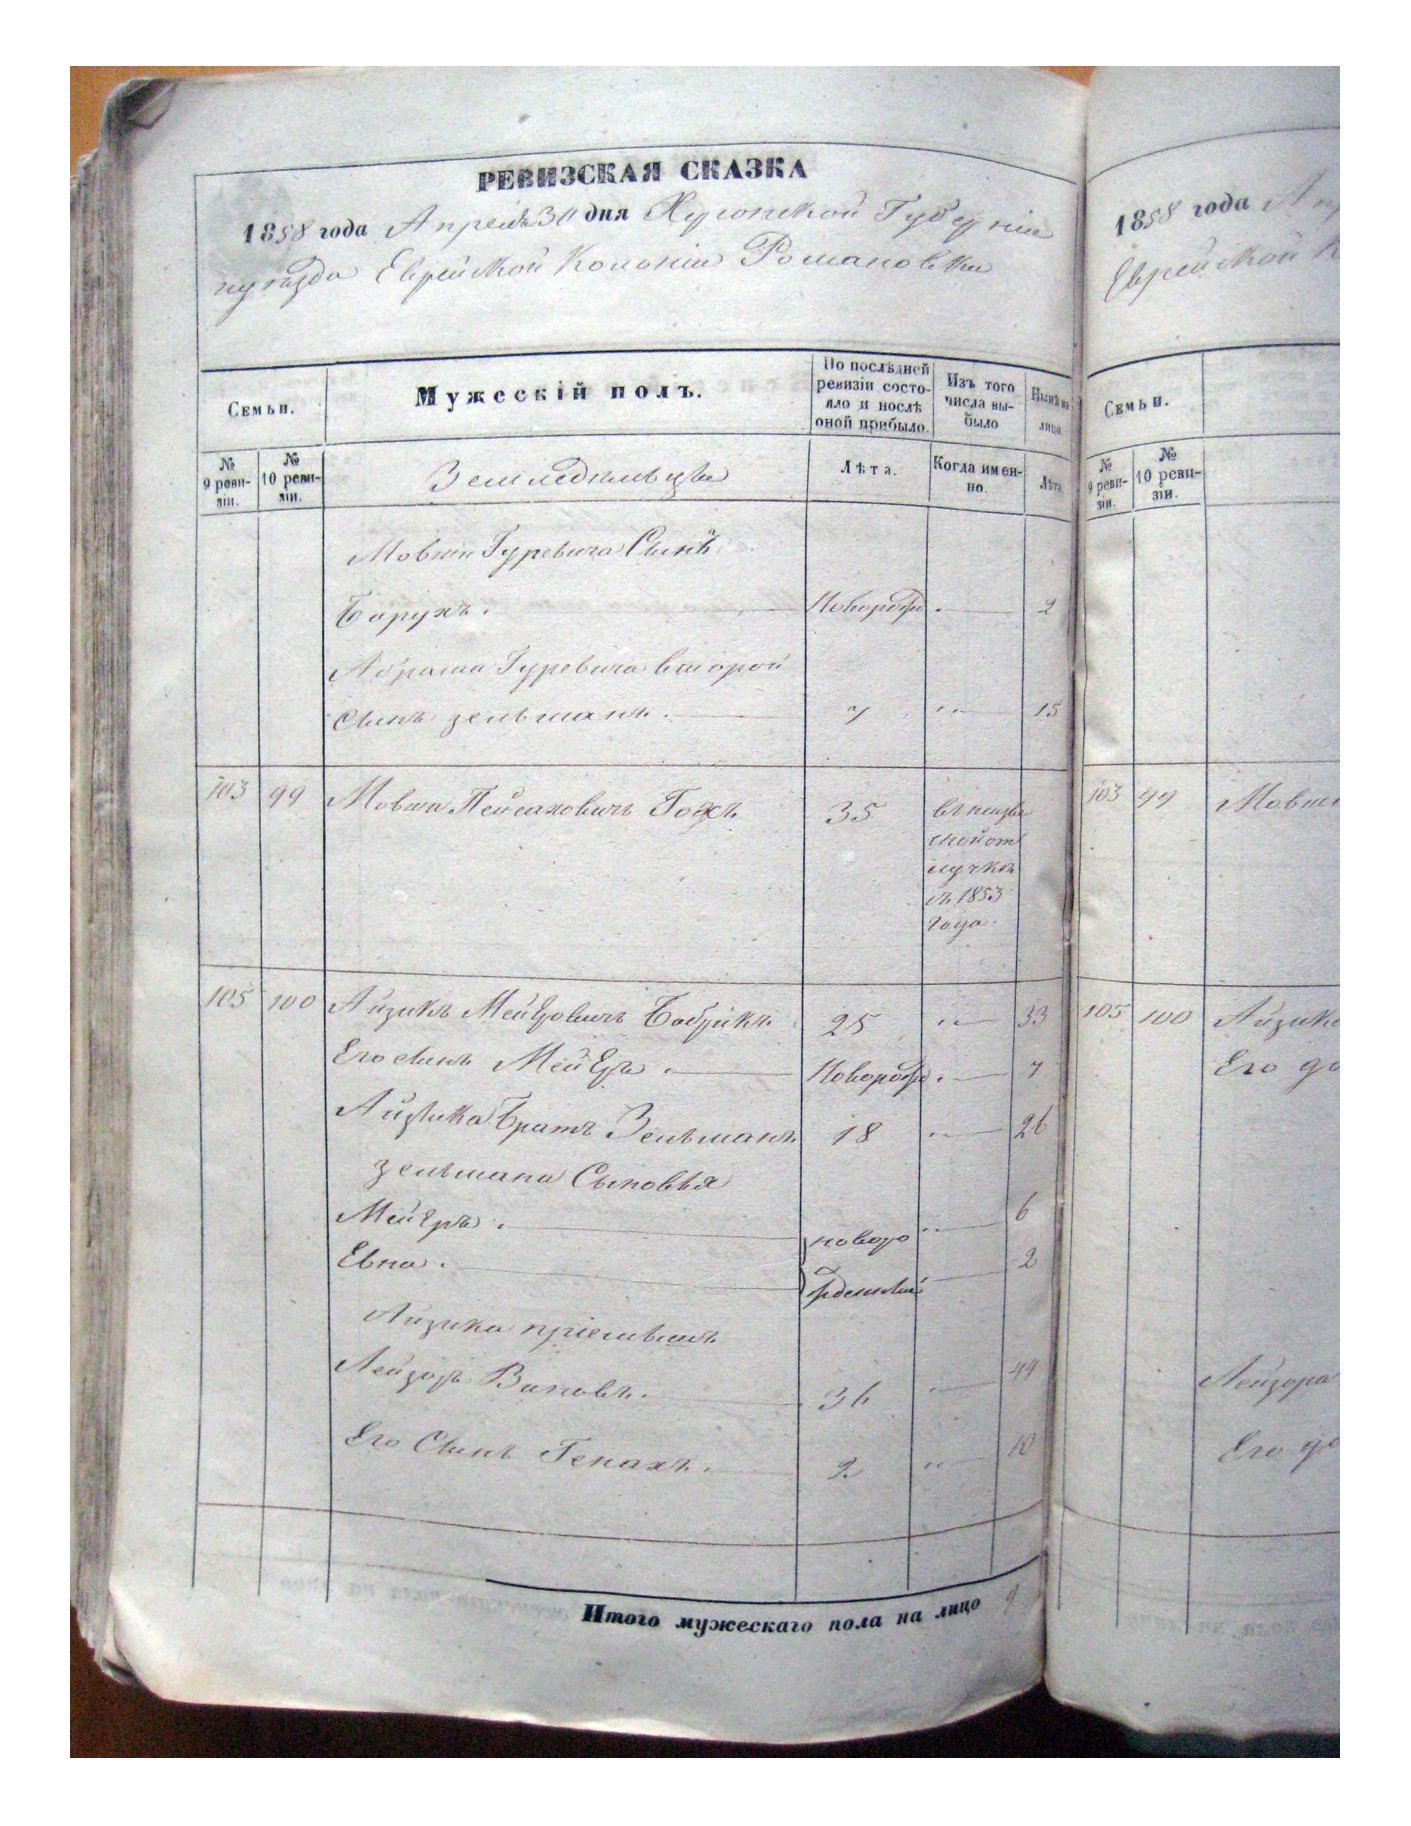 РЕВИЗСКАЯ СКАЗКА
1858 года Апреля 30 дня Херсонской Губерніи
и уезда Еврейской Колоніи Романовки
Семьи.
Мужескій полъ.
По послѣдней ревизіи состояло и послѣ оной прибыло.
Изъ того числа выбыло
Нынѣ на лицо.
№ 9 ревизіи.
№ 10 ревизіи.
Земледельцы
Лѣта.
Когда именно.
Лѣта
Мовши Гуревича Сынъ
Барухъ. Новорожд. 2
Абрама Гуревича второй
сынъ Зельманъ. 7 15
103 99 Мовша Пейсаховичъ 35 въ неизве
стной от
лучке
съ 1853
года.
105 100 Айзикъ Мейеровичъ Бобрикъ. 25 33
Его сынъ Мейеръ. Новорожд. 7
Айзика Братъ Зельманъ 18 26
Зельмана Сыновья
Мейеръ. новоро 6
Евна. жденный 2
Айзика пріемышъ
Лейзоръ Виновъ. 36 44
Его Сынъ Генахъ. 2 10
Итого мужескаго пола на лицо 9
1858 года
Еврейской
Семьи.
№ 9 ревизіи.
№ 10 ревизіи.
103 99 Мовши
105 100 Айзика
Его
Лейзора
Его